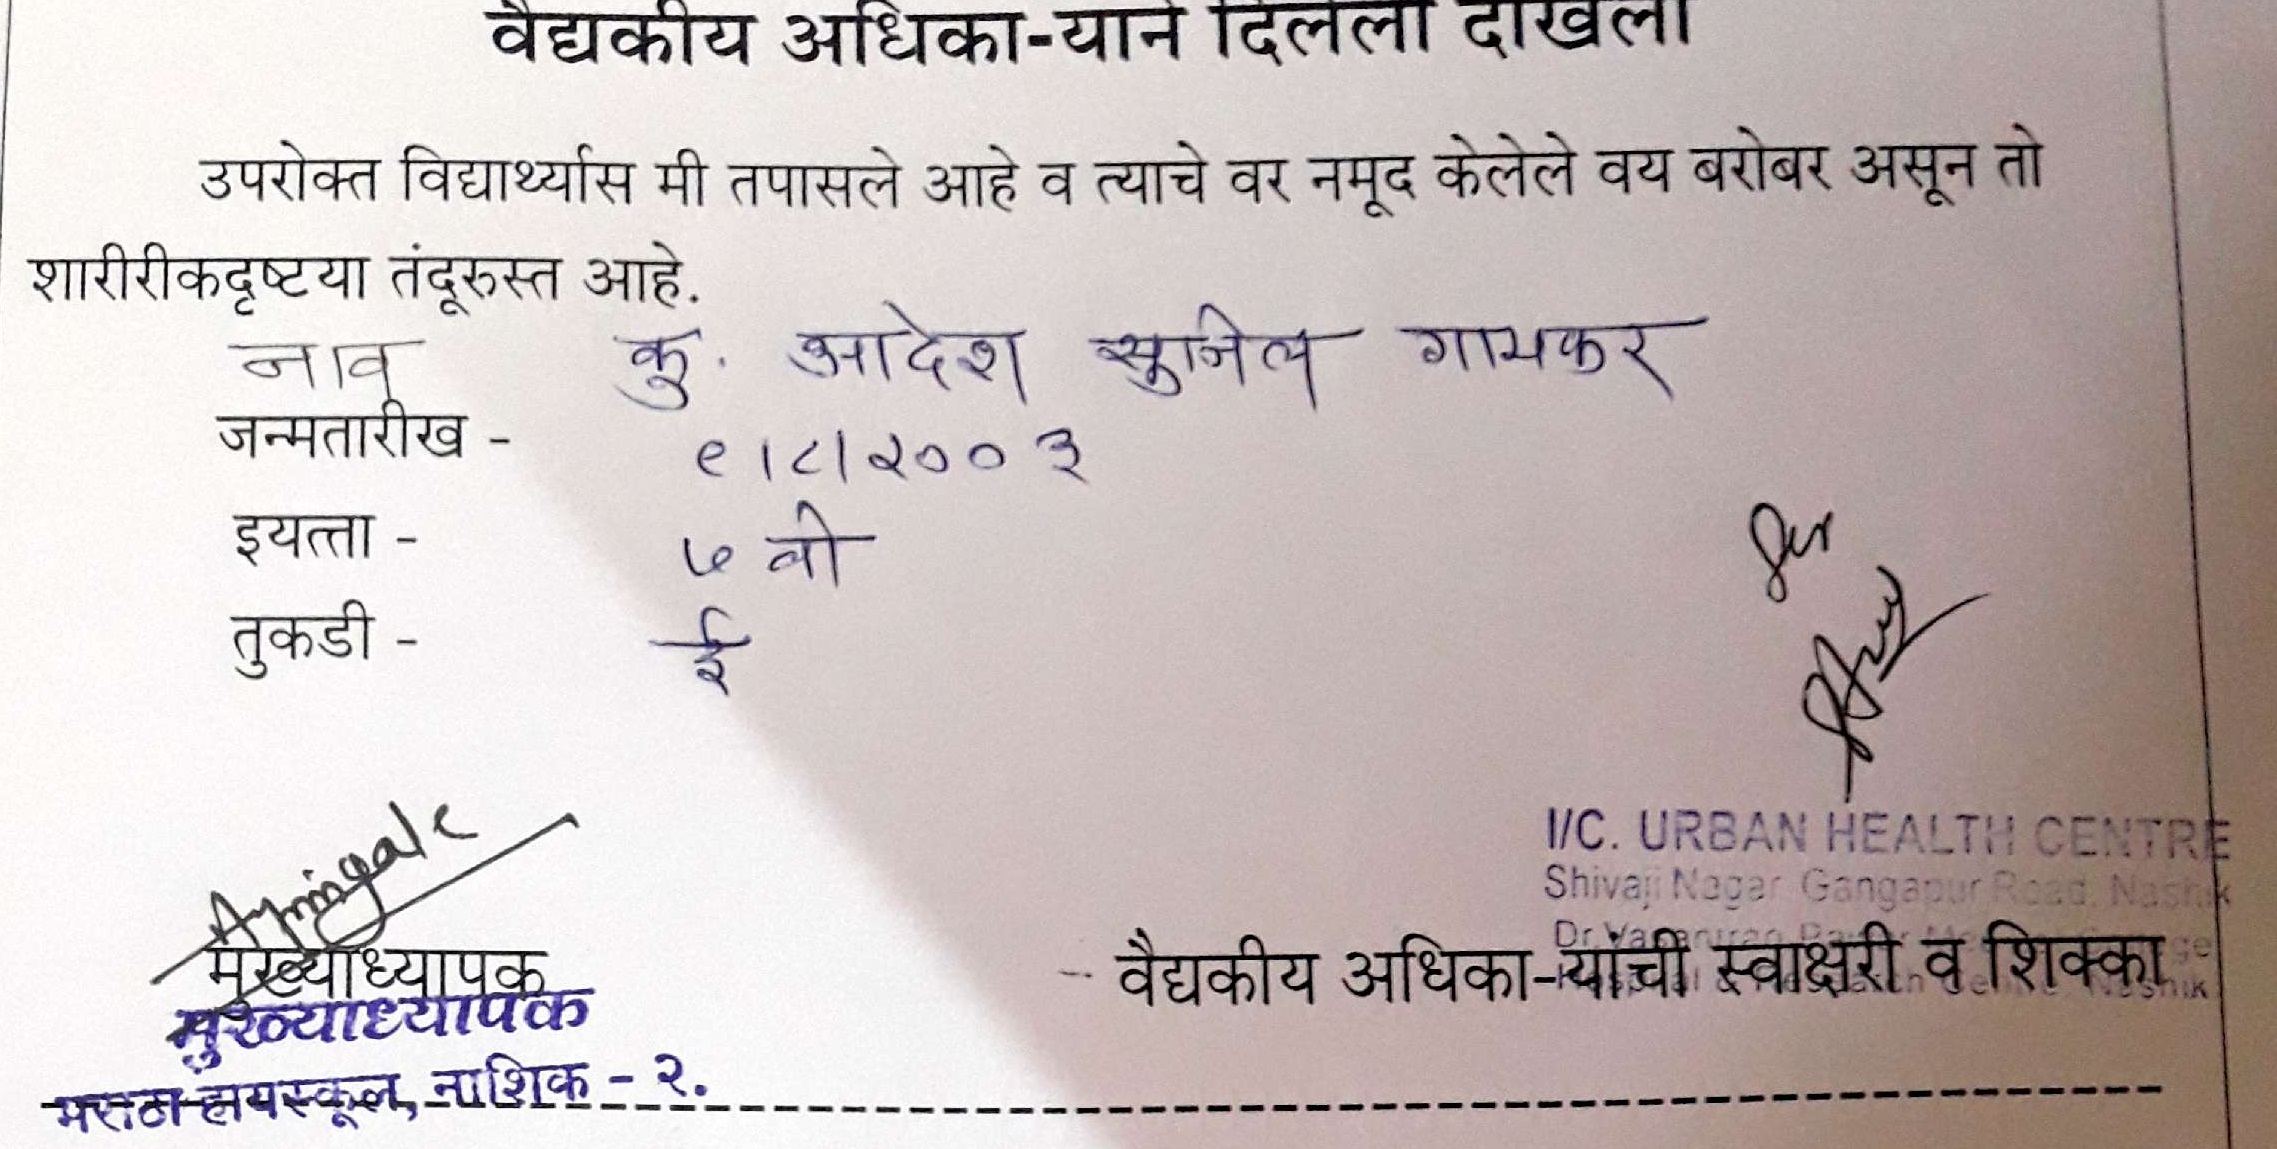 वैद्यकीय अधिका-याने दिलेला दाखला
उपरोक्त विद्यार्थ्यास मी तपासले आहे व त्याचे वर नमूद केलेले वय बरोबर असून तो
शारीरीकदृष्टया तंदूरुस्त आहे.
नाव कु. आदेश सुनिल गामकर
जन्मतारीख - ९।८।२००३
इयत्ता - ७ वी
तुकडी - ई
I/C. URBAN HEALTH CENTRE
Shivaji Nagar Gangapur Road, Nashik
मुख्याध्यापक
वैद्यकीय अधिका-यांची स्वाक्षरी व शिक्का
मुख्याध्यापक
मराठा हायस्कूल, नाशिक - २.